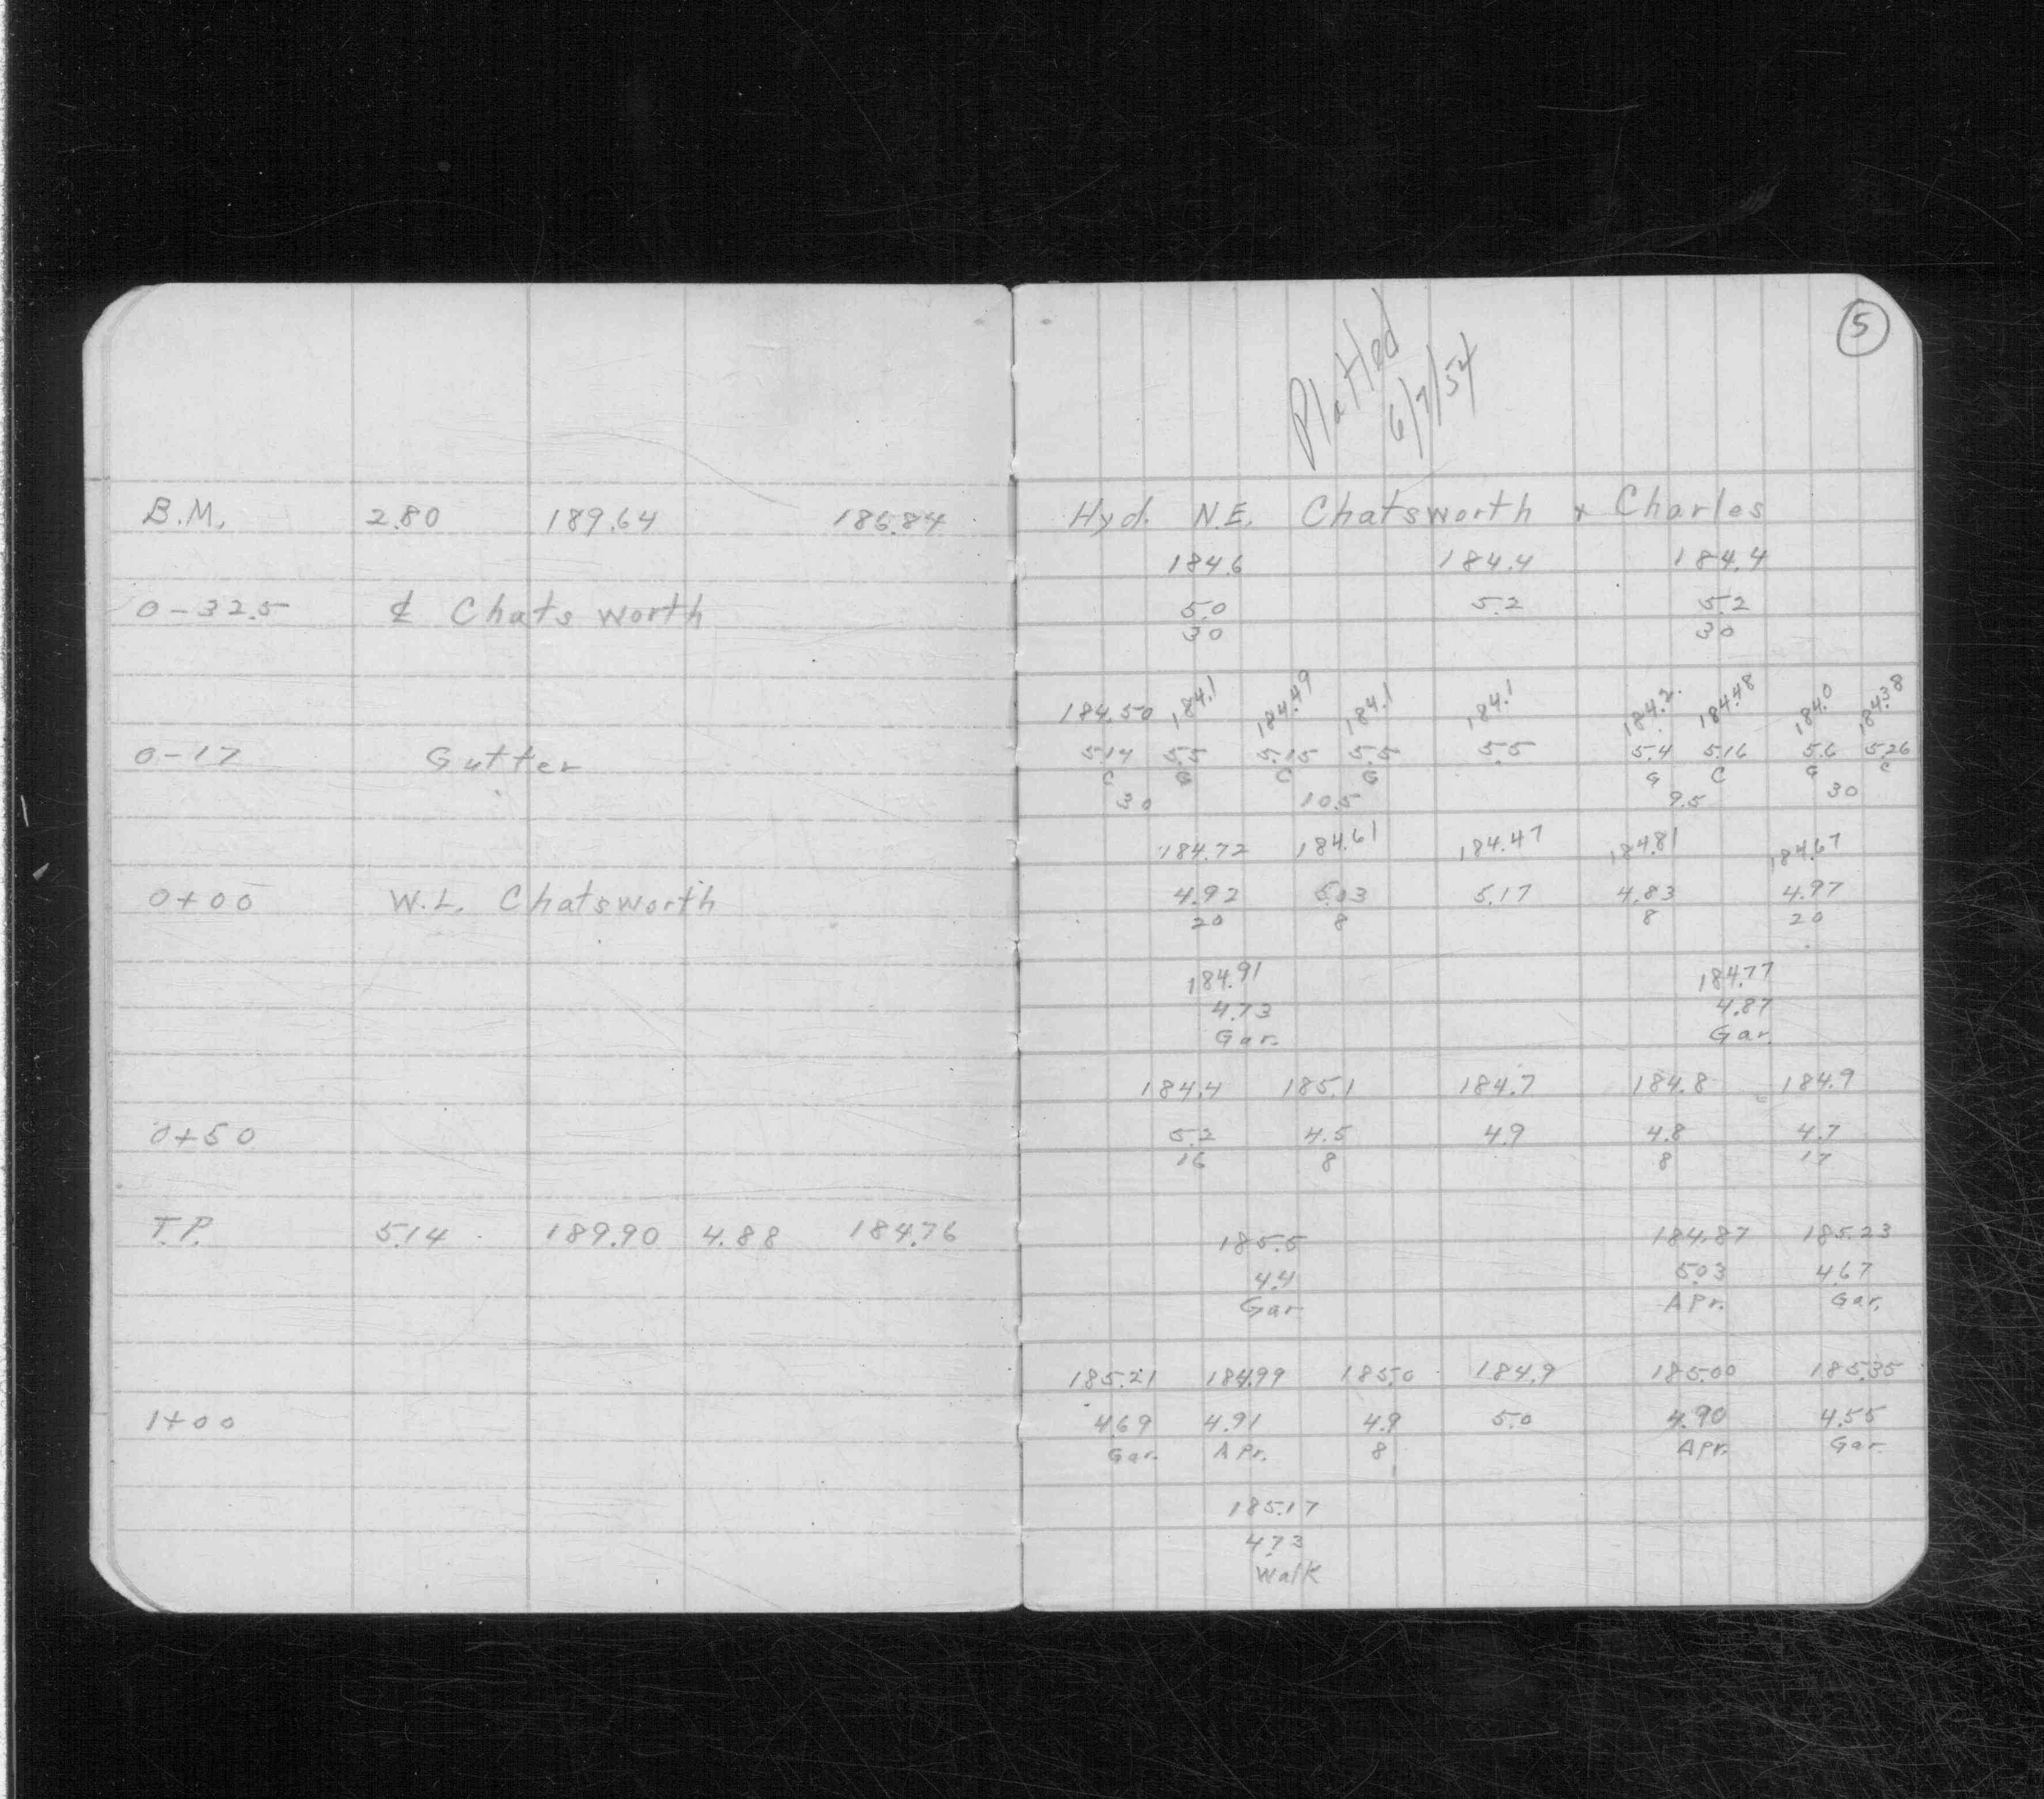 5
Plotted
6/7/54
B.M. 2.80 189.64 186.84 Hyd. N.E. Chatsworth & Charles
184.6 184.4 184.4
0-32.5 ℄ Chatsworth 5.0 5.2 5.2
30 30
184.50 184.1 184.49 184.1 184.1 184.2 184.48 184.0 184.38
0-17 Gutter 5.14 5.5 5.15 5.5 5.5 5.4 5.16 5.6 5.26
C G C G G C G C
30 10.5 9.5 30
184.72 184.61 184.47 184.81 184.67
0+00 W.L. Chatsworth 4.92 5.03 5.17 4.83 4.97
20 8 8 20
184.91 184.77
4.73 4.87
Gar. Gar.
184.4 185.1 184.7 184.8 184.9
0+50 5.2 4.5 4.9 4.8 4.7
16 8 8 17
T.P. 5.14 189.90 4.88 184.76 185.5 184.87 185.23
4.4 5.03 4.67
Gar APr. Gar.
185.21 184.99 185.0 184.9 185.00 185.35
1+00 4.69 4.91 4.9 5.0 4.90 4.55
Gar. APr. 8 APr. Gar
185.17
4.73
Walk